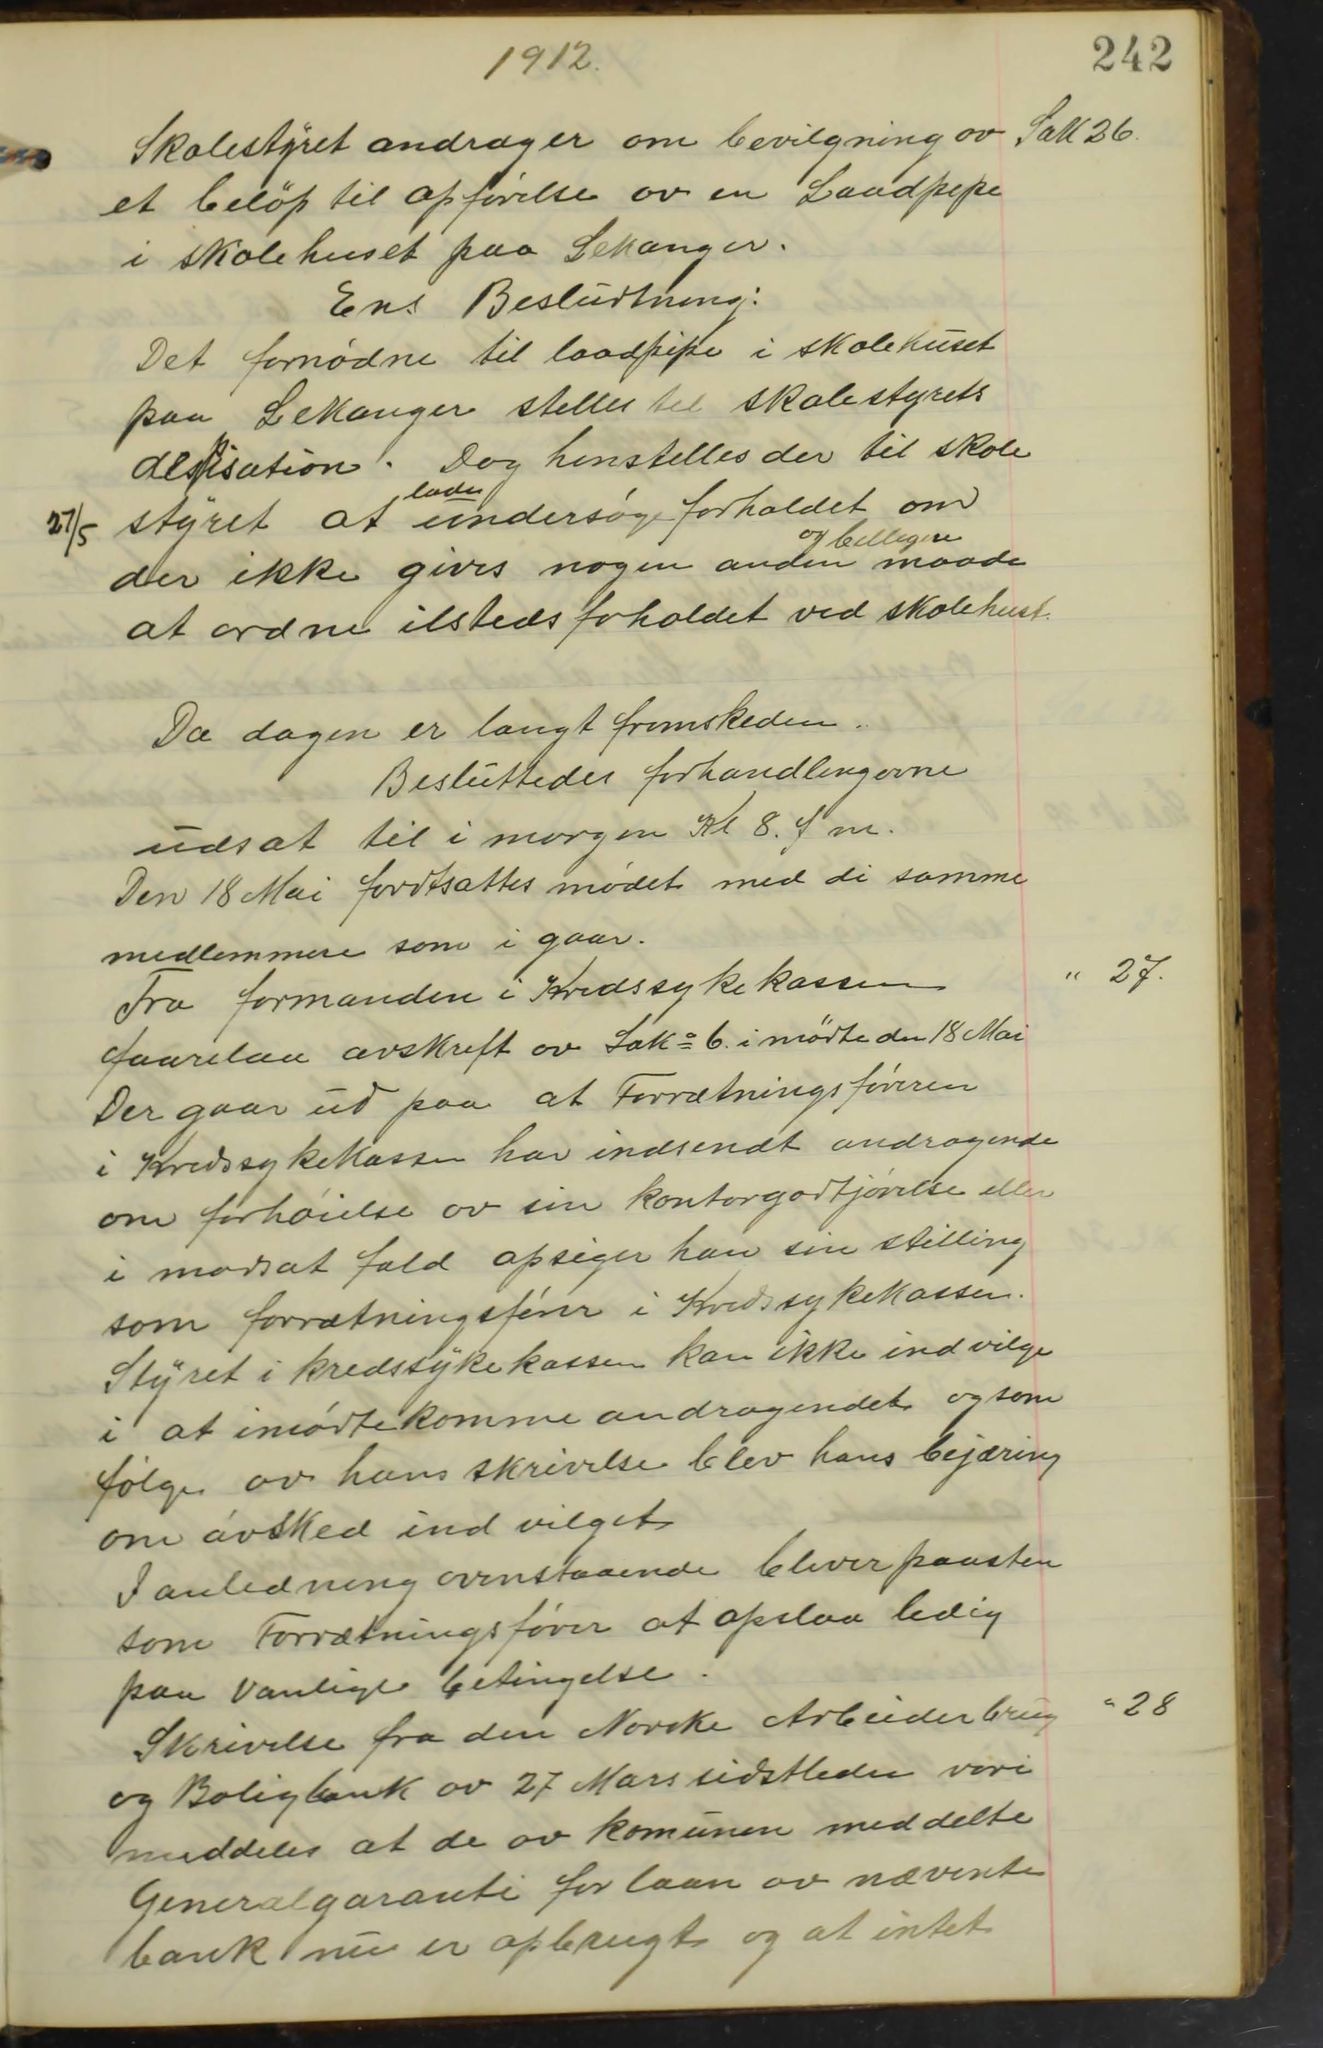 1912.
242
Skolestyret andrager om bevilgning ov Sak 26.
et beløp til opførelse ov en Laadpipe
i skolehuset paa Lekanger.
Ens Besludtning:
Det fornødne til laadpipe i skolehuset
paa Lekanger stelles til skolestyrets
despisation. Dog henstelles der til skole
27/5 styret at lade undersøge forholdet om
der ikke gives nogen anden og belligere maade
at ordne ilsteds foholdet ved skolehust.
Da dagen er langt fremskeden.
Besluttedes forhandlingerne
udsat til i morgen Kl 8. f m.
Den 18 Mai fordtsattes mødet med di samme
medlemmere som i gaar.
Fra formanden i Kredssykekassen " 27.
faarelaa avskreft ov Sak 6. i mødte den 18 Mai
Der gaar ud paa at Forrætningsføreren
i Kredssykekassen har indsendt andragende
om forhøielse ov sin kontorgodtjørelse eller
i modsat fald opsiger han sin stilling
som forrætningsfører i Kredssykekassen.
Styret i kredssykekassen kan ikke ind vilge
i at imødtekomme andragendet og som
følge ov hans skrivelse blev hans bejæring
om avsked ind vilget
I anledning ovenstaaende bliver paasten
som Forrætningsfører at opslaa ledig
paa vanlige betingelse.
Skrivelse fra den Norske Arbeiderbrug " 28
og Boligbank ov 27 Mars sidstleden vori
meddeles at de ov komunen meddelte
Generalgaranti for laan ov nævente
bank nu er opbrugt og at intet